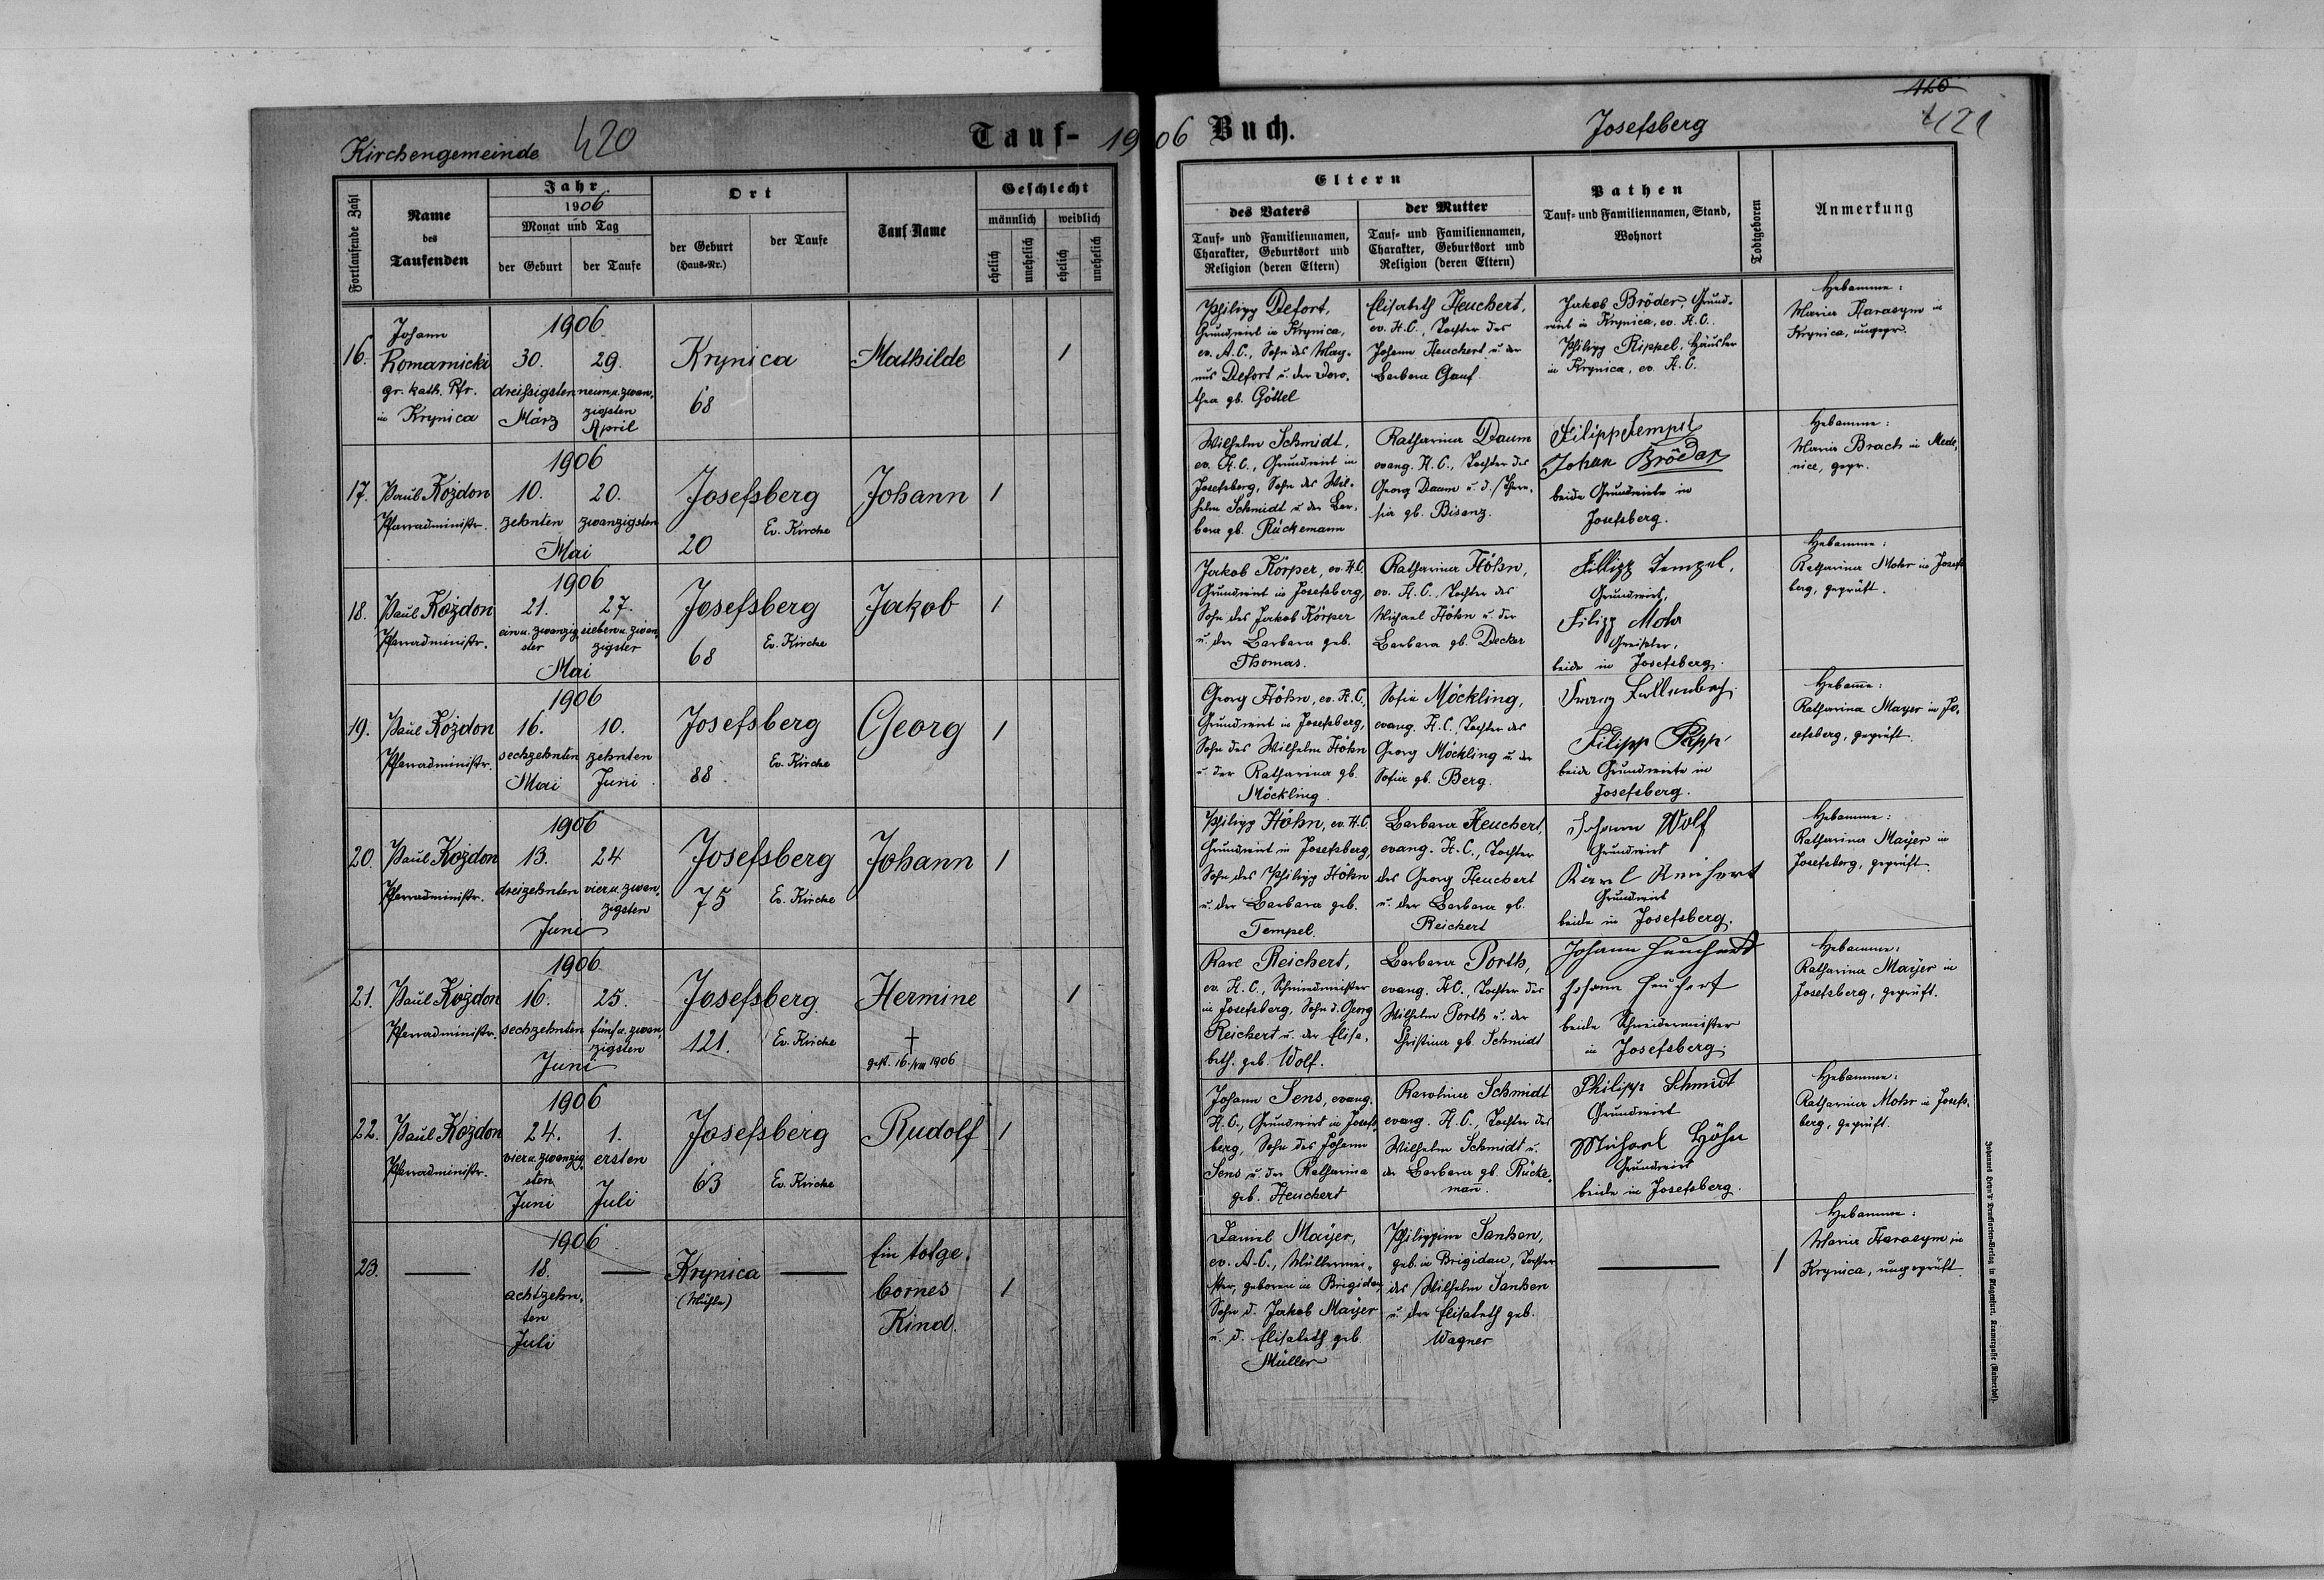 Kirchengemeinde 420 Tauf- 1906 Buch. Josefsberg 120 421
Fortlaufende Zahl
Name
des
Taufenden
Jahr
1906
Monat und Tag
der Geburt
der Taufe
Ort
der Geburt
(Haus-Nr.)
der Taufe
Tauf Name
Geschlecht
männlich
weiblich
ehelich
unehelich
ehelich
unehelich
Eltern
des Vaters
Tauf- und Familiennamen,
Charakter, Geburtsort und
Religion (deren Eltern)
der Mutter
Tauf- und Familiennamen,
Charakter, Geburtsort und
Religion (deren Eltern)
Pathen
Tauf- und Familiennamen, Stand,
Wohnort
Todtgeboren
Anmerkung
16.
Johann
Romarnicki
gr. kath. Pfr.
in Krynica
1906
30.
dreissigsten
März
29.
neun u. zwan-
zigsten
April
Krynica
68
Mathilde
1
Philipp Defort,
Grundwirt in Krynica,
ev. A. C., Sohn des Mag-
nus Defort u. der Doro-
thea gb. Göttel
Elisabeth Heuchert,
ev. H. C., Tochter des
Johann Heuchert u. der
Barbara Gauf.
Jakob Bröder, Grund-
wirt in Krynica, ev. H. C.
Philipp Rippel, Häusler
in Krynica, ev. H. C.
Hebamme:
Maria Harasym in
Krynica, ungepr.
17.
Paul Kożdon
Pfarradministr.
1906
10.
zehnten
20.
zwanzigsten
Mai
Josefsberg
20
Ev. Kirche
Johann
1
Wilhelm Schmidt,
ev. H. C., Grundwirt in
Josefsberg, Sohn des Wil-
helm Schmidt u. der Bar-
bara gb. Rückemann
Katharina Daum
evang. H. C., Tochter des
Georg Daum u. d. There-
sia gb. Bisanz.
Filipp Tempel
Johan Bröder
beide Grundwirte in
Josefsberg.
Hebamme:
Maria Brach in Mede-
nice, gepr.
18.
Paul Kożdon
Pfarradministr.
1906
21.
ein u. zwanzig
ster
27.
sieben u. zwan
zigster
Mai
Josefsberg
68
Ev. Kirche
Jakob
1
Jakob Körper, ev. H. C.
Grundwirt in Josefsberg,
Sohn des Jakob Körper
u. der Barbara geb.
Thomas.
Katharina Höhn,
ev. H. C. Tochter des
Michael Höhn u. der
Barbara gb. Decker
Fillipp Tempel,
Grundwirt,
Filipp Mohr
Greisler,
beide in Josefsberg.
Hebamme:
Katharina Mohr in Josefs
berg, geprüft.
19.
Paul Kożdon
Pfarradministr.
1906
16.
sechzehnten
Mai
10.
zehnten
Juni
Josefsberg
88.
Ev. Kirche
Georg
1
Georg Höhn, ev. H. C.,
Grundwirt in Josefsberg,
Sohn des Wilhelm Höhn
u. der Katharina gb.
Möckling
Sofia Möckling,
evang. H. C., Tochter des
Georg Möckling u. der
Sofia gb. Berg.
Franz Fallenbach
Filipp
beide Grundwirte in
Josefsberg.
Hebame:
Katharina Mayer in Jo-
sefsberg, geprüft
20.
Paul Kożdon
Pfarradministr.
1906
13.
dreizehnten
24
vier u. zwan
zigsten
Juni
Josefsberg
75
Ev. Kirche
Johann
1
Philipp Höhn, ev. H. C.
Grundwirt in Josefsberg,
Sohn des Philipp Höhn
u. der Barbara geb.
Tempel.
Barbara Heuchert,
evang. H. C., Tochter
des Georg Heuchert
u. der Barbara gb.
Reichert
Johann Wolf
Grundwirt
Karl Reichert
Grundwirt
beide in Josefsberg.
Hebamme:
Katharina Mayer in
Josefsberg, geprüft
21.
Paul Kożdon
Pfarradministr.
1906
16.
sechzehnten
25.
fünf u. zwan
zigsten
Juni
Josefsberg
121.
Ev. Kirche
Hermine
†
gest. 16./VIII 1906
1
Karl Reichert,
ev. H. C., Schmiedmeister
in Josefsberg, Sohn d. Georg
Reichert u. der Elisa-
beth. geb. Wolf.
Barbara Porth,
evang. H. C., Tochter des
Wilhelm Porth u. der
Christina gb. Schmidt
Johann Heuchert
Johann Heuchert
beide Schneidermeister
in Josefsberg.
Hebamme:
Katharina Mayer in
Josefsberg, geprüft.
22.
Paul Kożdon
Pfarradministr.
1906
24.
vier u. zwanzig-
sten
Juni
1.
ersten
Juli
Josefsberg
63
Ev. Kirche
Rudolf
1
Johann Sens, evang.
H. C., Grundwirt in Josefs
berg, Sohn des Johann
Sens u. der Katharina
geb. Heuchert
Karolina Schmidt
evang. H. C., Tochter des
Wilhelm Schmidt u.
der Barbara gb. Rücke-
mañ.
Philipp Schmidt
Grundwirt
Michael Höhn
Grundwirt
beide in Josefsberg.
Hebamme:
Katharina Mohr in Josefs-
berg, geprüft.
23.
1906
18.
achtzehn-
ten
Juli
Krynica
(Mühle)
Ein totge-
bornes
Kind.
1
Daniel Mayer,
ev. A. C., Müllermei-
ster, geboren in Brigidau,
Sohn d. Jakob Mayer
u. d. Elisabeth geb.
Müller
Philippine Manken,
geb. in Brigidau, Tochter
des Wilhelm Manken
u. der Elisabeth geb.
Wagner
1
Hebamme:
Maria Harasym in
Krynica, ungeprüft